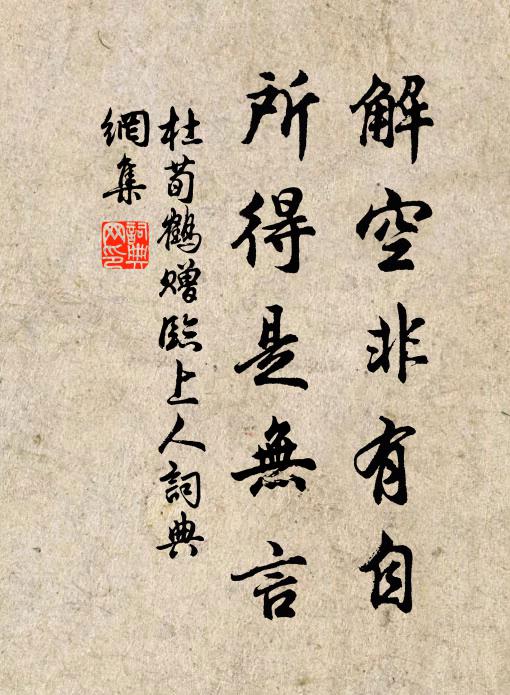 解空非有自
所得是無言
杜荀鶴贈臨上人詞典
網集
詞典網印